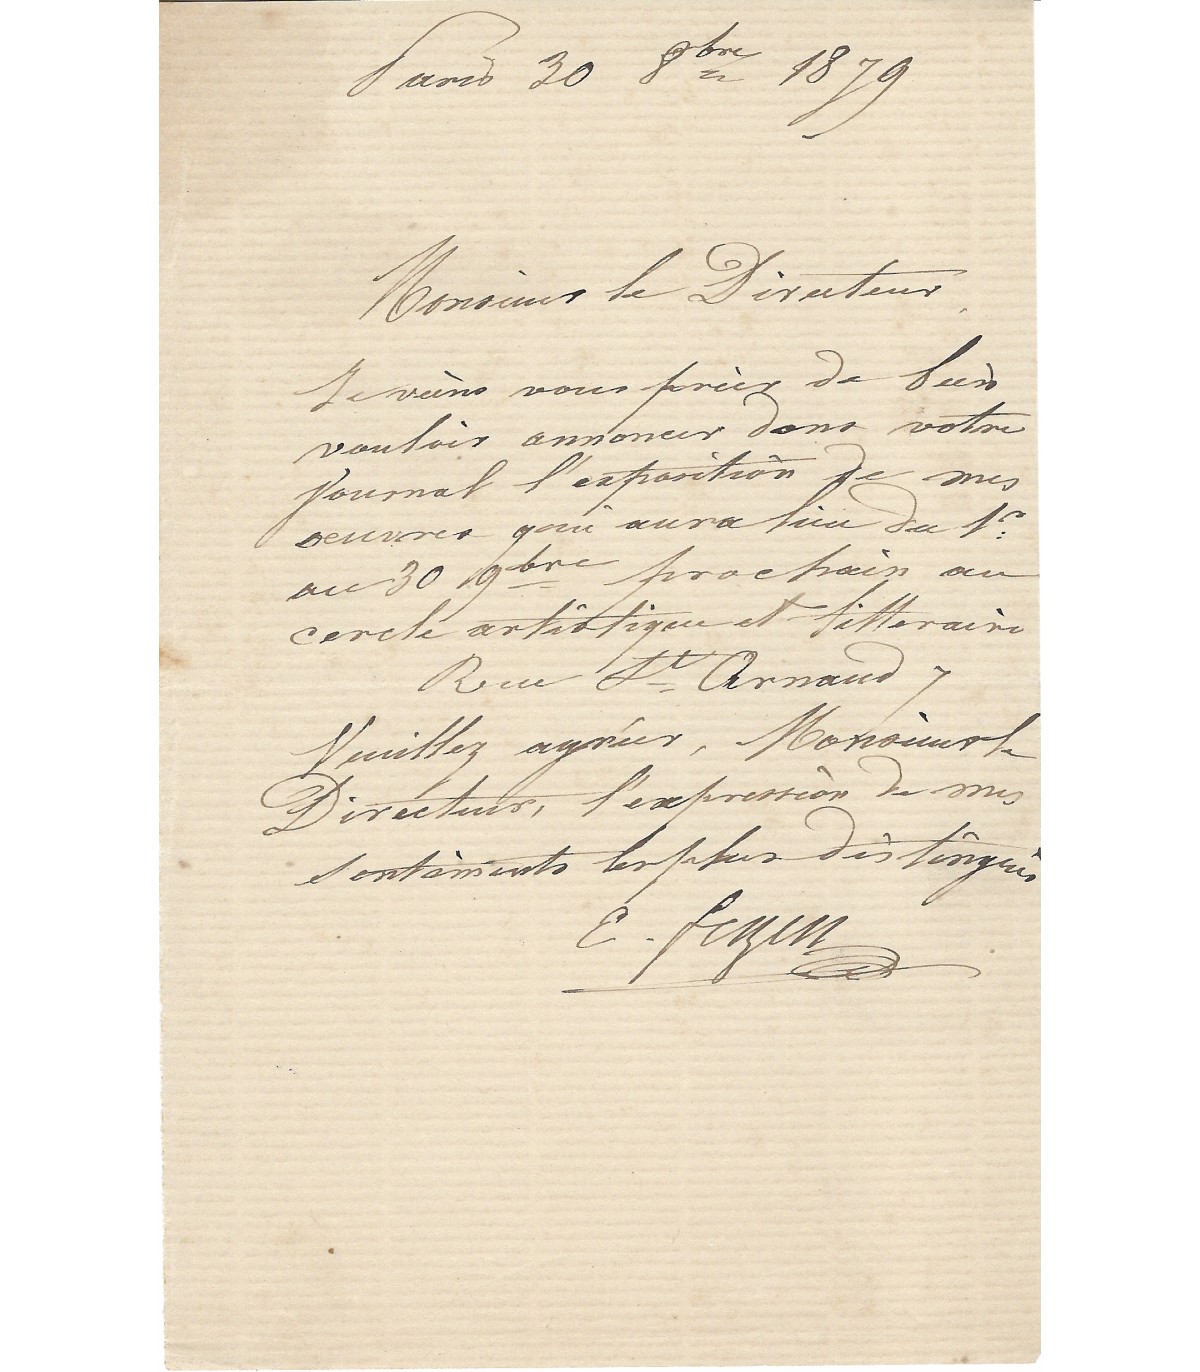 Paris 30 8bre 1879
Monsieur le Directeur,
Je viens vous prier de bien
vouloir annoncer dans votre
journal l'exposition de mes
oeuvres qui aura lieu du 1er
au 30 9bre prochain au
cercle artistique et litteraire
Rue St Arnaud 7
Veuillez agréer, Monsieur le
Directeur, l'expression de mes
sentiments les plus distingués
E. Feyen